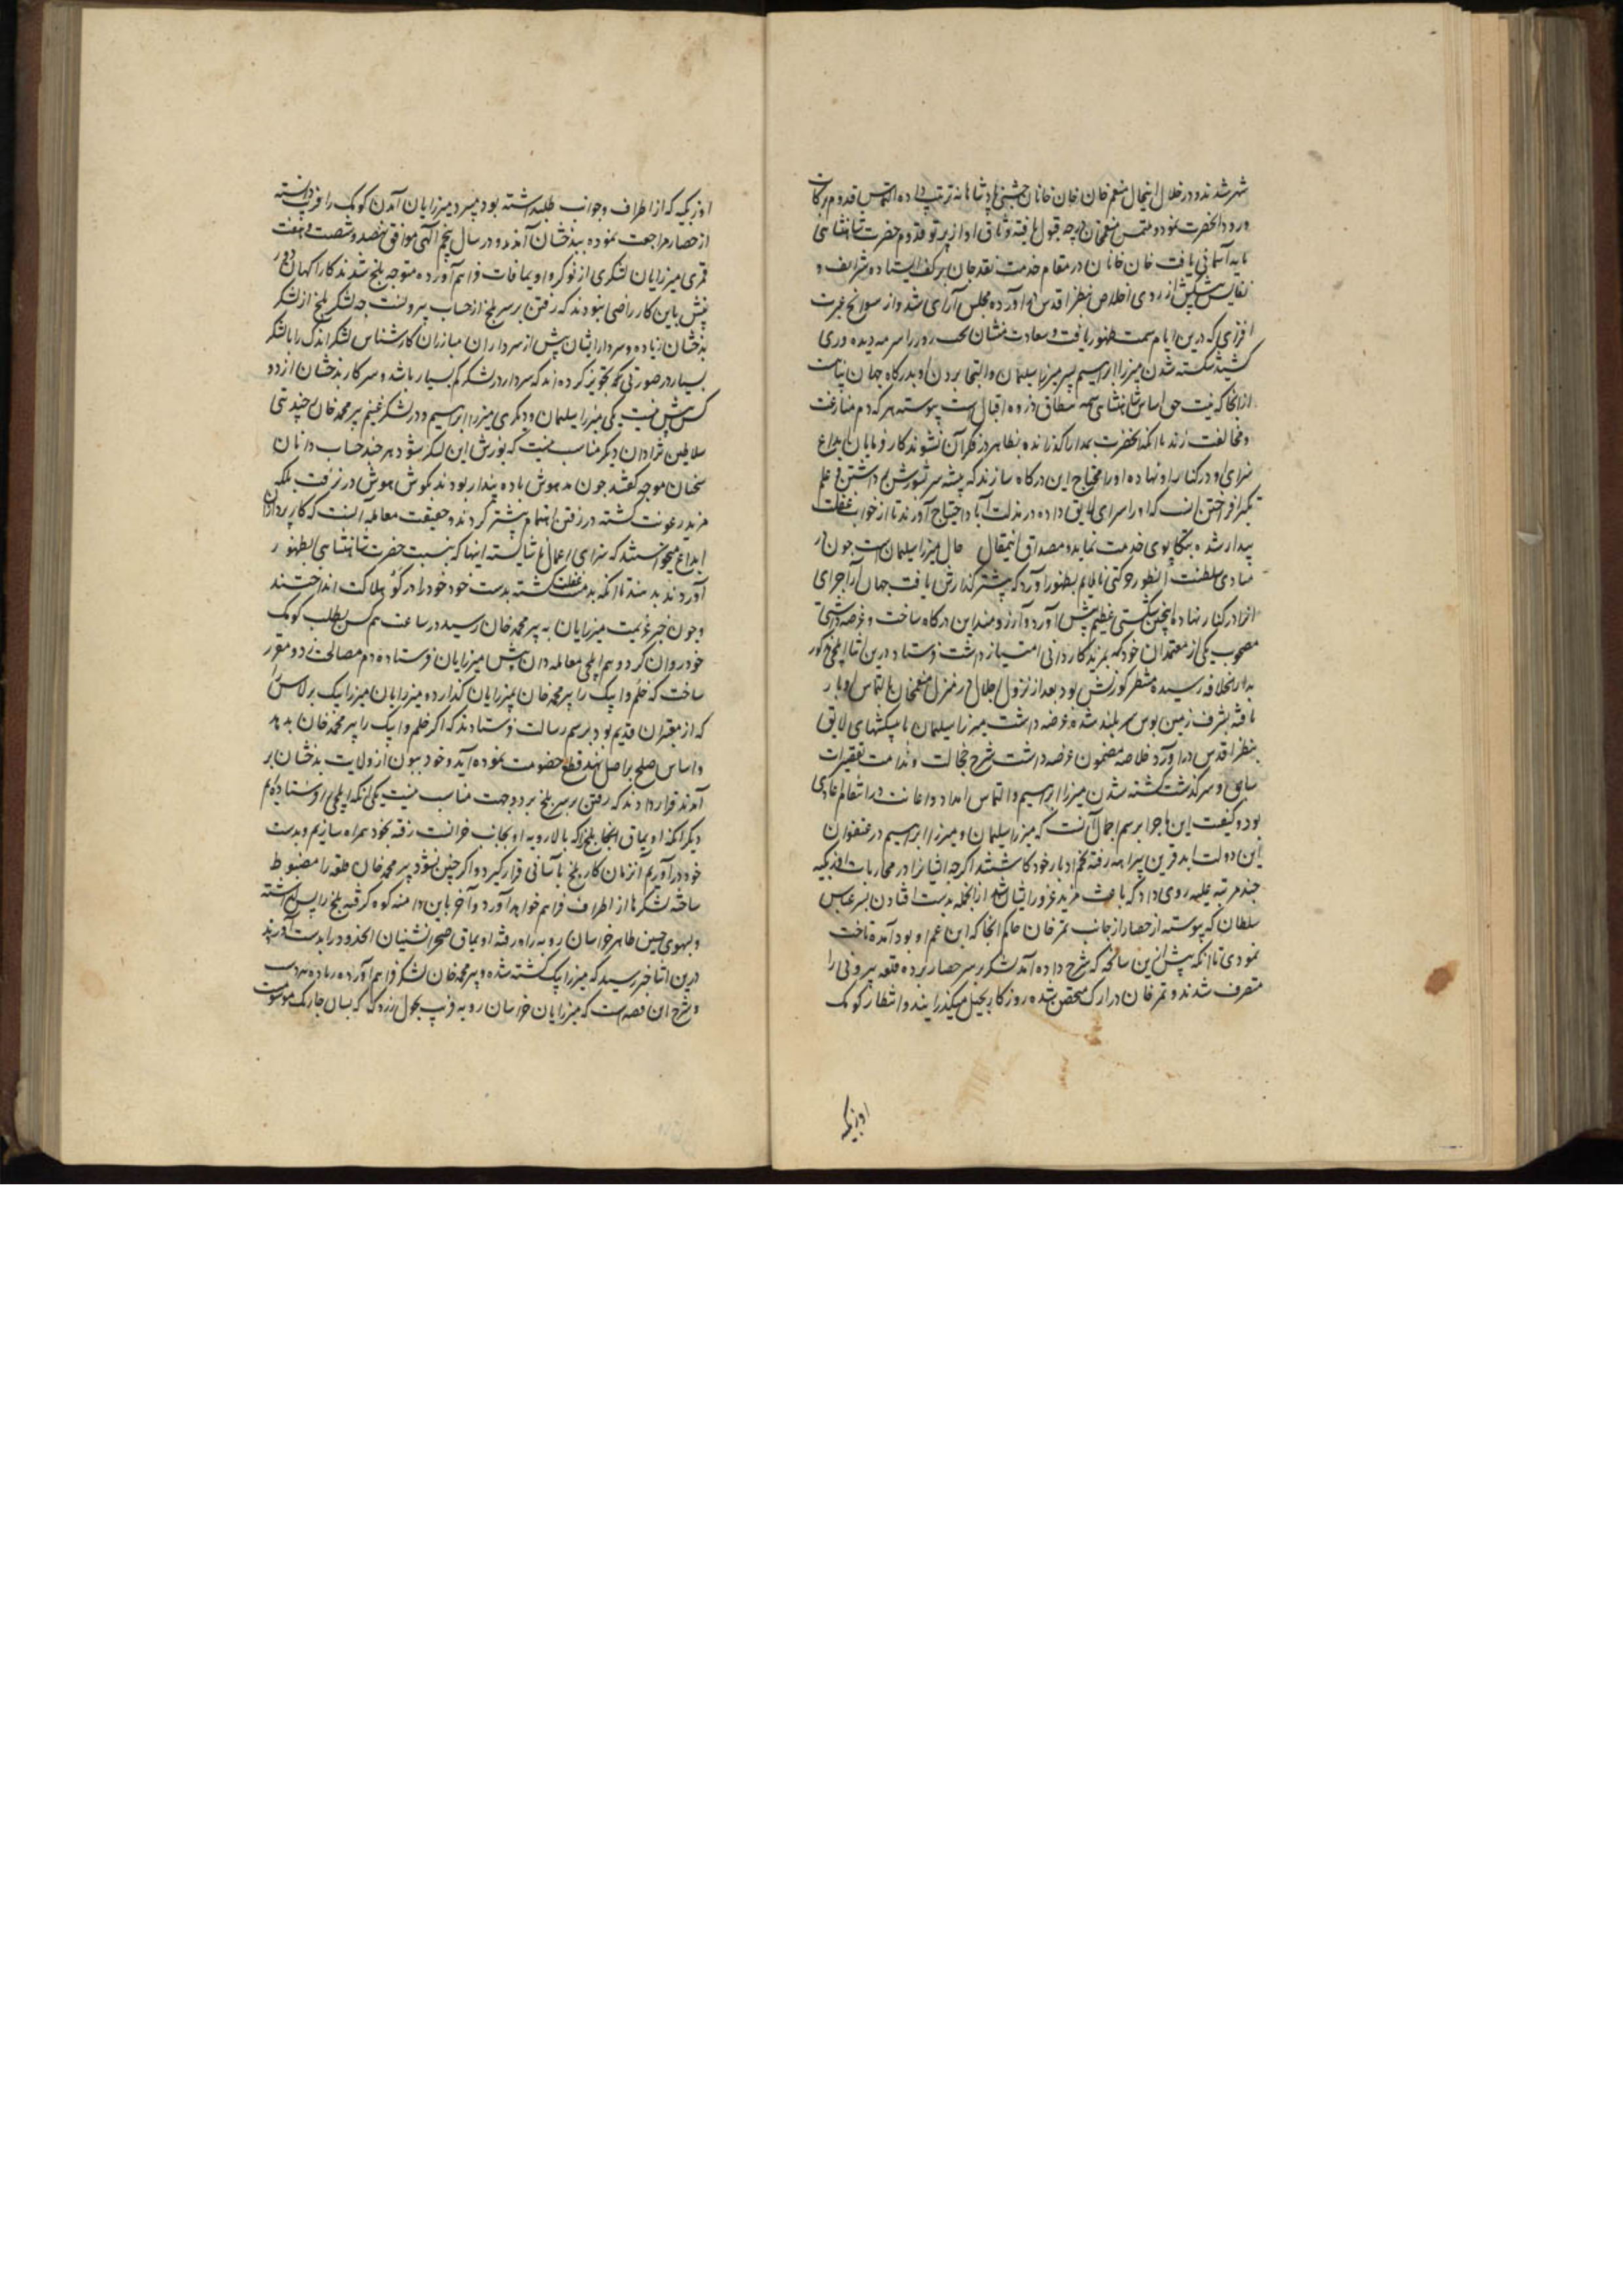 شهر شدند و در خلال اینحال منعم خان خان خانان جشنی پادشاهانه ترتیب داده التماس قدوم برکات
ورود آنحضرت نمود و ملتمس منعم خان درجه قبول یافته وثاق او از پرتو قدوم حضرت شاهنشاهی
پایه آسمانی یافت خان خانان در مقام خدمت نقد جان بر کف ایستاده شرایف و
نفایس پیشکش از روی اخلاص بنظر اقدس در آورده مجلس آرای شد و از سوانح عبرت
افزای که درین ایام سمت ظهور یافت و سعادت منشان را سرمه دیده وری
کشید شکسته شدن میرزا ابراهیم پسر میرزا سلیمان و التجا بردن او بدرگاه جهان پناهست
ازانجا که نیت حق اساس شاهنشاهی ذروه اقبال است پیوسته هر که دم منازعت
و مخالفت زند با آنکه آنحضرت بمدارا گذرانده بظاهر در فکر آن نشوند کارفرمایان ابداع
سزای او در کنار او نهاده او را محتاج این درگاه سازند که پیشه سر شورش داشتن و علم
تکبر افراختن است که او را سزای لایق داده در مذلت آباد احتیاج آورند تا از خواب غفلت
بیدار شده بتکاپوی خدمت نماید و مصداق اینمقال حال میرزا سلیمان است چون از
مبادی سلطنت حرکتی ناملایم بظهور آورد که پیشتر گذارش یافت جهان آرا جزای
آنرا در کنار نهاد تا اینچنین شکستی عظیم پیش آورد و آرزومند این درگاه ساخت و عرضه داشتی
مصحوب یکی از معتمدان خود که بمزید کاردانی امتیاز داشت فرستاد درین اثنا ایلچی مذکور
بدارالخلافه رسیده منتظر کورنش بود بعد از نزول اجلال در منزل منعم خان بالتماس او بار
یافته بشرف زمین بوس سربلند شده عرضه داشت میرزا سلیمان با پیشکشهای لایق
بنظر اقدس در آورد خلاصه مضمون عرضه داشت شرح خجالت و ندامت تقصیرات
سابق و سرگذشت کشته شدن میرزا ابراهیم و التماس امداد و اعانت در انتقام اعادی
بود و کیفیت این ماجرا برسم اجمال آنست که میرزا سلیمان و میرزا ابراهیم در عنفوان
این دولت ابد قرین بیراهه رفته تخم ادبار خود کاشتند اگرچه ایشانرا در محاربات اوزبکیه
چند مرتبه غلبه روی داد که باعث مزید غرور ایشان شد ازانجمله بدست افتادن پسر عباس
سلطان که پیوسته از حصار از جانب تمر خان حاکم آنجا که ابن عم او بود آمده تاخت
نمودی تا آنکه پیش ازین سانحه که شرح داده آمد لشکر بر سر حصار برده قلعه بیرونی را
متصرف شدند و تمر خان در ارک متحصن شده روزگار بحیل میگذرانید و انتظار کومک
اوزبکیه
اوزبکیه که از اطراف و جوانب طلبداشته بود میبرد میرزایان آمدن کومک را قریب دانسته
از حصار مراجعت نموده ببدخشان آمدند و در سال پنجم الهی موافق نهصد و شصت و هفت
قمری میرزایان لشکری از نوکر و اویماقات فراهم آورده متوجه بلخ شدند کارآگهان دور
بینش باین کار راضی نبودند که رفتن بر سر بلخ از حساب بیرونست چه لشکر بلخ از لشکر
بدخشان زیاده و سردار ایشان بیش از سرداران مبارزان کارشناس لشکر اندک را با لشکر
بسیار در صورتی حکم تجویز کرده اند که سردار در لشکر کم بسیار باشد و سرکار بدخشان از دو
کس بیش نیست یکی میرزا سلیمان و دیگری میرزا ابراهیم و در لشکر غنیم پیر محمد خان و چندی
سلاطین نژادان دیگر مناسب نیست که یورش این لشکر شود هر چند حساب دانان
سخنان موجه گفتند چون مدهوش باده پندار بودند بگوش هوش در نرفت بلکه
مزید رعونت گشته در رفتن اهتمام بیشتر کردند و حقیقت معامله آنست که کارپردازان
ابداع میخواستند که سزای اعمال ناشایسته اینها که بنسبت حضرت شاهنشاهی بظهور
آوردند بدهند تا آنکه بدمست غفلت گشته بدست خود خود را در گو هلاکت انداختند
و چون خبر عزیمت میرزایان به پیر محمد خان رسید در ساعت هم کس بطلب کومک
خود روان کرد و هم ایلچی معامله دان پیش میرزایان فرستاده دم مصالحت زد و مقرر
ساخت که خلم و ایبک را پیر محمد خان بمیرزایان گذارده میرزایان میرزا بیک برلاس را
که از معتبران قدیم بود برسم رسالت فرستادند که اگر خلم و ایبک را پیر محمد خان بدهد
و اساس صلح بر اصل نهند قطع خصومت نموده آید و خود بیرون از ولایت بدخشان بر
آمدند قرار دادند که رفتن بر سر بلخ بر دو جهت مناسب نیست یکی آنکه ایلچی فرستاده ایم
دیگر آنکه اویماق ایلنجاق بلخ را که بالا رویه او بجانب خراسانست رفته بخود همراه سازیم و بدست
خود در آوریم آنزمان کار بلخ بآسانی قرار گیرد و اگر چنین نشود پیر محمد خان قلعه را مضبوط
ساخته لشکرها از اطراف فراهم خواهد آورد و آخر باین دامنه کوه گرفته بلخ را پس گذاشته
و بسوی حسین ظاهر خراسان رویه راه رفته اویماق صحرانشینان آنحدود را بدست آوردند
درین اثنا خبر رسید که میرزا بیک کشته شده و پیر محمد خان لشکر فراهم آورده
و شرح این قصه است که میرزایان خراسان رویه قریب بچول زردک که بسان چاریک موسوم است